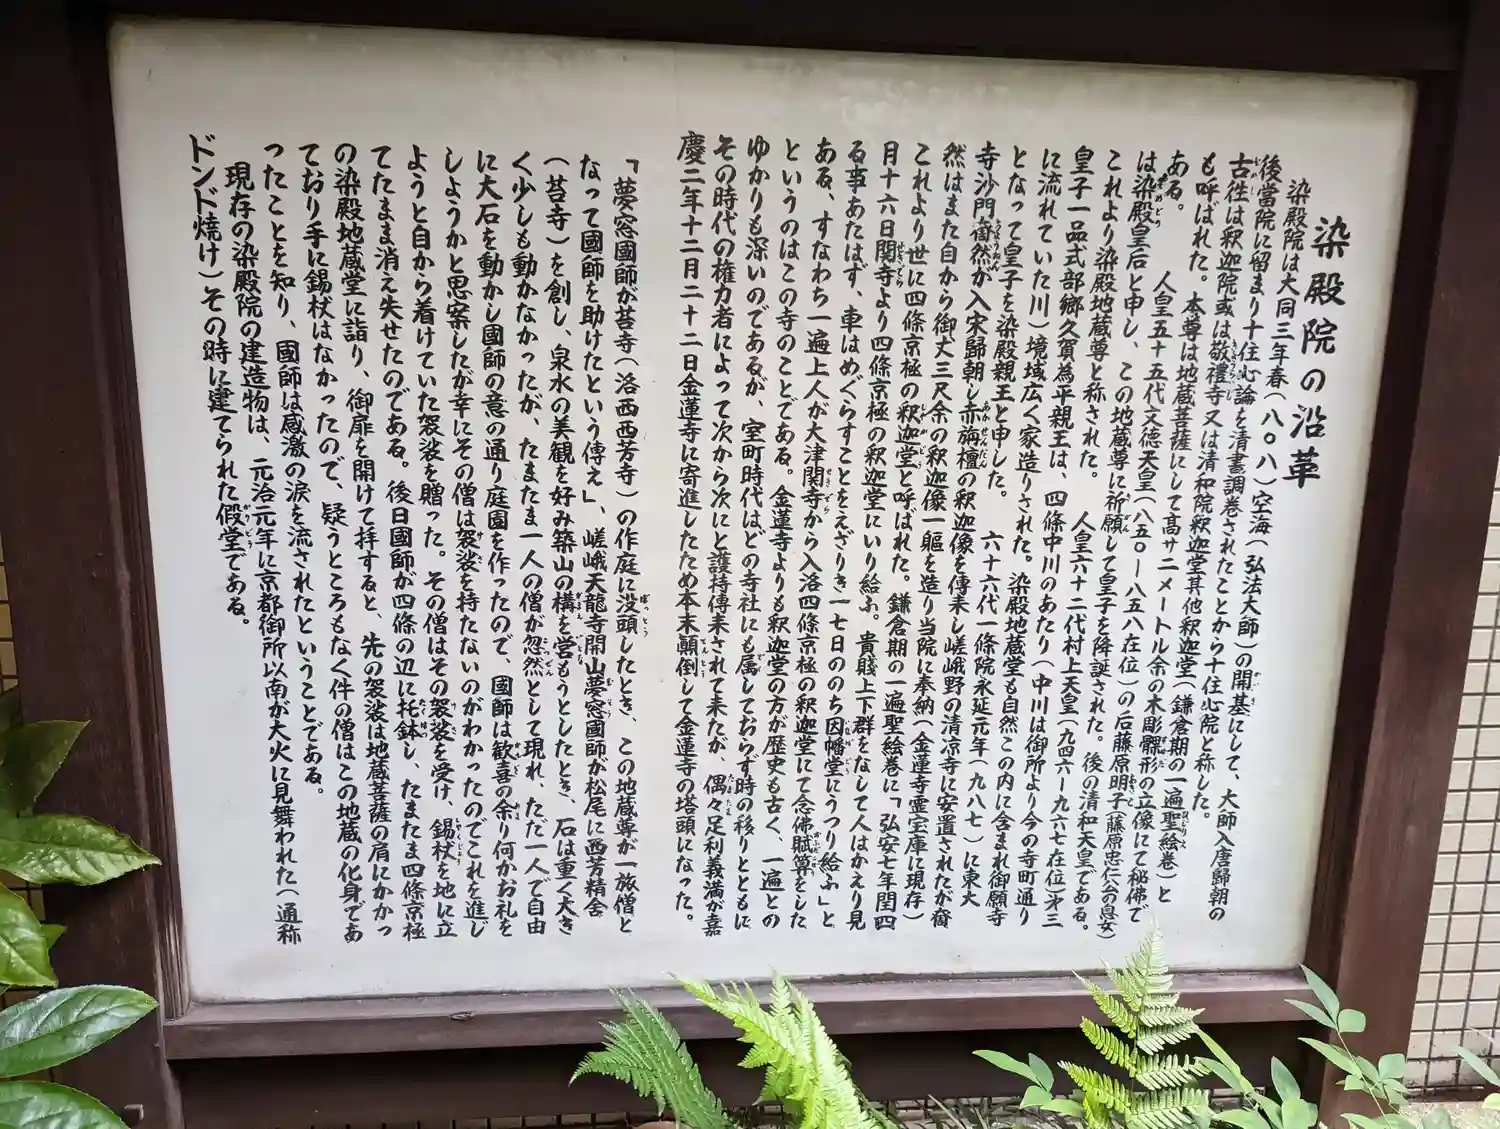 染殿院の沿革
染殿院は大同三年春（八〇八）空海（弘法大師）の開基にして、大師入唐歸朝の
後當院に留まり十住心論を清書調巻されたことから十住心院と称した。
古徃は釈迦院或は敬禮寺又は清和院釈迦堂其他釈迦堂（鎌倉期の一遍聖絵巻）と
も呼ばれた。　本尊は地蔵菩薩にして高サ二メートル余の木彫髁形の立像にて秘佛で
ある。　人皇五十五代文徳天皇（八五〇ー八五八在位）の后藤原明子（藤原忠仁公の息女）
は染殿皇后と申し、この地蔵尊に祈願して皇子を降誕された。後の清和天皇である。
これより染殿地蔵尊と称された。　人皇六十二代村上天皇（九四六ー九六七在位）才三
皇子一品式部郷久賀為平親王は、四條中川のあたり（中川は御所より今の寺町通り
に流れていた川）境域広く家造りされた。染殿地蔵堂も自然この内に含まれ御願寺
となって皇子を染殿親王と申した。　六十六代一條院永延元年（九八七）に東大
寺沙門奝然が入宋歸朝し赤栴檀の釈迦像を傳来し嵯峨野の清凉寺に安置されたが奝
然はまた自から御丈三尺余の釈迦像一軀を造り当院に奉納（金蓮寺霊宝庫に現存）
これより世に四條京極の釈迦堂と呼ばれた。鎌倉期の一遍聖絵巻に「弘安七年閏四
月十六日関寺より四條京極の釈迦堂にいり給ふ。貴賤上下群をなして人はかえり見
る事あたはず、車はめぐらすことをえざりき一七日ののち因幡堂にうつり給ふ」と
ある、すなわち一遍上人が大津関寺から入洛四條京極の釈迦堂にて念佛賦算をした
というのはこの寺のことである。金蓮寺よりも釈迦堂の方が歴史も古く、一遍との
ゆかりも深いのであるが、室町時代はどの寺社にも属しておらず時の移りとともに
その時代の権力者によって次から次にと護持傳来されて来たが、偶々足利義満が嘉
慶二年十二月二十二日金蓮寺に寄進したため本末顚倒して金蓮寺の塔頭になった。
「夢窓國師が苔寺（洛西西芳寺）の作庭に没頭したとき、この地蔵尊が一旅僧と
なって國師を助けたという傳え」、嵯峨天龍寺開山夢窓國師が松尾に西芳精舎
（苔寺）を創し、泉水の美観を好み築山の構を営もうとしたとき、石は重く大き
く少しも動かなかったが、たまたま一人の僧が忽然として現れ、ただ一人で自由
に大石を動かし國師の意の通り庭園を作ったので、國師は歓喜の余り何かお礼を
しようかと思案したが幸にその僧は袈裟を持たないのがわかったのでこれを進じ
ようと自から着けていた袈裟を贈った。その僧はその袈裟を受け、錫杖を地に立
てたまま消え失せたのである。後日國師が四條の辺に托鉢し、たまたま四條京極
の染殿地蔵堂に詣り、御扉を開けて拝すると、先の袈裟は地蔵菩薩の肩にかかっ
ており手に錫杖はなかったので、疑うところもなく件の僧はこの地蔵の化身であ
ったことを知り、國師は感激の涙を流されたということである。
現存の染殿院の建造物は、元治元年に京都御所以南が大火に見舞われた（通称
ドンド焼け）その時に建てられた假堂である。